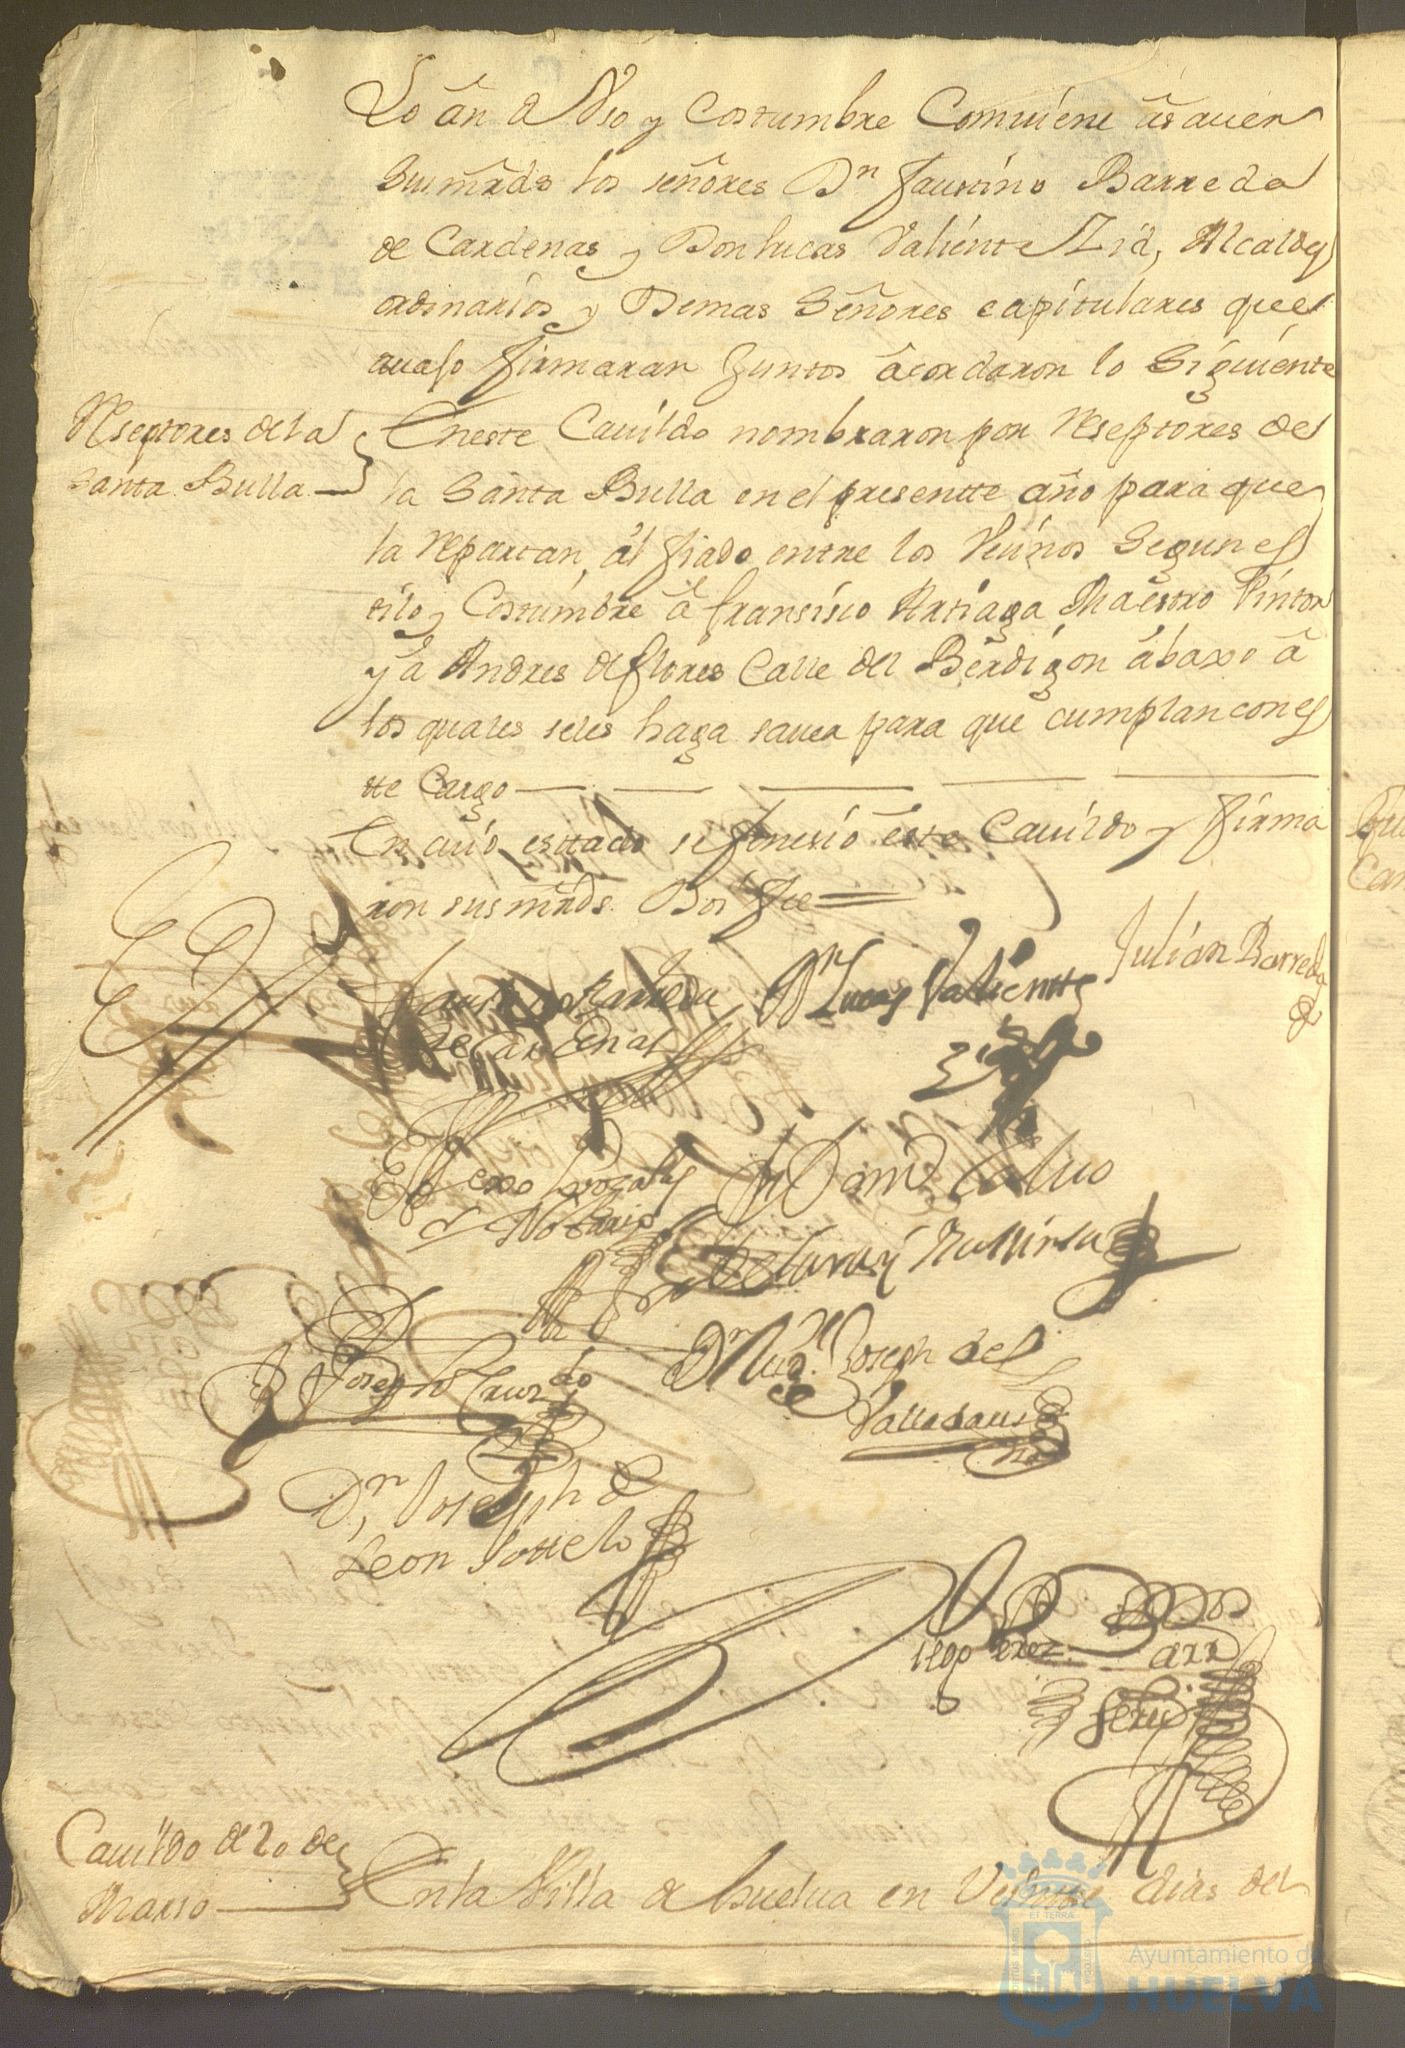 Lo an de Vso y Costumbre Combiene asauer
Susmrds los señores Dn Faustino Barreda
de Cardenas y Don Lucas Valiente Zid, Alcaldes
ordinarios y Demas Señores capitulares que
auajo firmaran Juntos acordaron lo Siguiente
Reseptores de la
Santa Bulla
Eneste Cauildo nombraron por Reseptores de
la Santa Bulla en el presentte año para que
la Repartan, al fiado entre los Veсinos Segun es
tilo y Costumbre a Fransisco Artiaga Maestro Pintor
y a Andres de flores Calle del Berdigon abaxo a
los quales seles haga sauer para que cumplan con es
tte Cargo
En cuio esttado se fenesio este Cauildo y firma
ron susmrds. Doi fee
Faustino Barreda
de Cardenas
Dn Lucas Valientte
Zid
Julian Barreda
Notario
Calvo
Dn Joseph de
Valladares
Dn Joseph de
Leon Sottelo
Diego Perez
Cauildo de 20 de
Marso
En la Villa de huelua en Veintte dias del
Ayuntamiento de
HUELVA